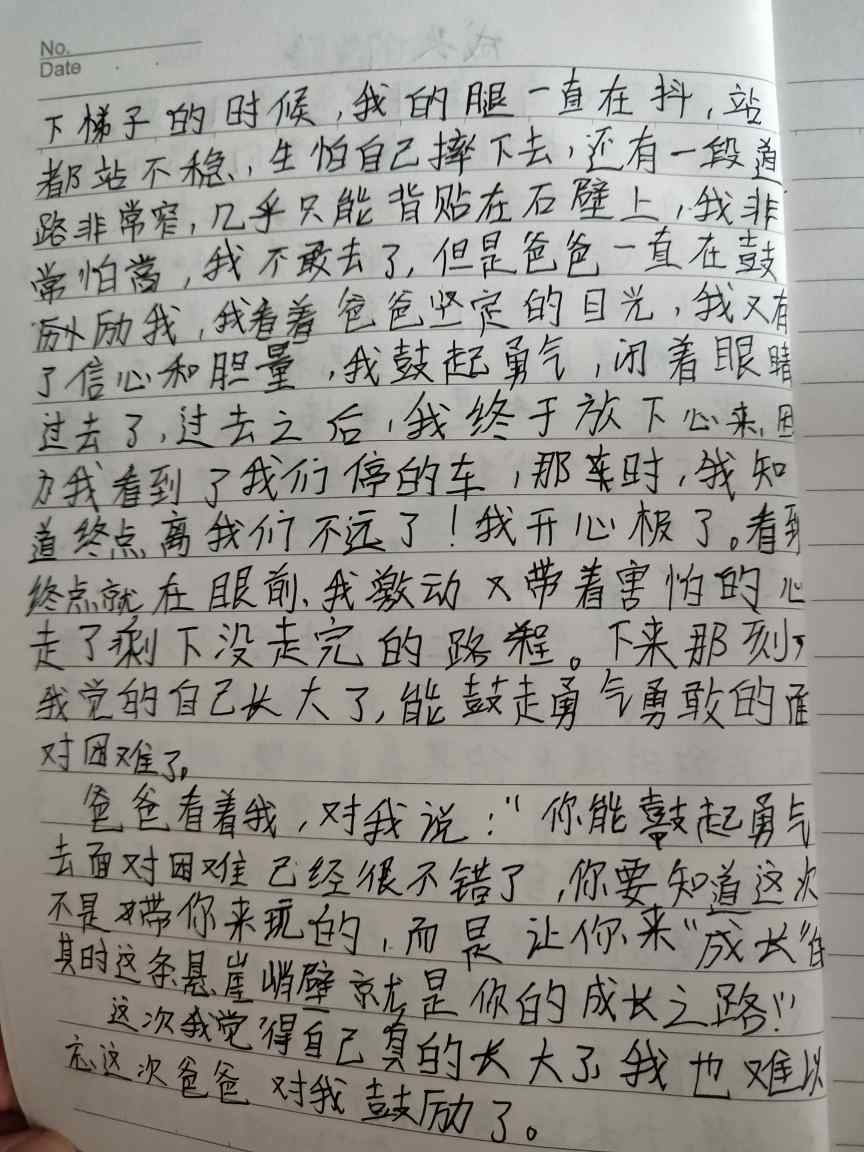 No.
Date
下梯子的时候，我的腿一直在抖，站
都站不稳，生怕自己摔下去，还有一段道
路非常窄，几乎只能背贴在石壁上，我非
常怕高，我不敢去了，但是爸爸一直在鼓
励我，我看着爸爸坚定的目光，我又有
了信心和胆量，我鼓起勇气，闭着眼睛
过去了，过去之后，我终于放下心来，因
为我看到了我们停的车，那时，我知
道终点离我们不远了！我开心极了。看到
终点就在眼前、我激动又带着害怕的心
走了剩下没走完的路程。下来那刻了
我觉的自己长大了，能鼓走勇气勇敢的面
对困难了。
爸爸看着我，对我说：“你能鼓起勇气
去面对困难已经很不错了，你要知道这次
不是带你来玩的，而是让你来“成长”的
其时这条悬崖峭壁就是你的成长之路！”
这次我觉得自己真的长大了，我也难以
忘这次爸爸对我鼓励了。